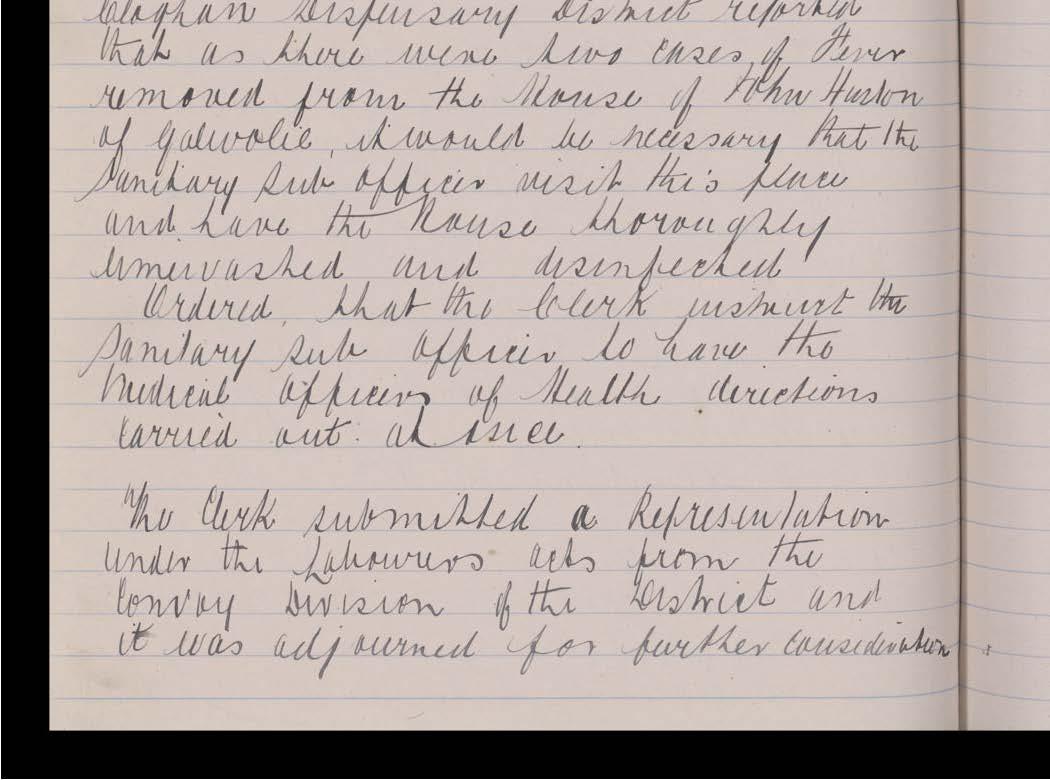 Cloghan Dispensary District reported
that as there were two cases of Fever
removed from the House of John Huston
of Galwolie, it would be necessary that the
Sanitary Sub Officer visit this place
and have the House thoroughly
Limewashed and disinfected
Ordered, that the Clerk instruct the
Sanitary Sub Officer to have the
Medical Officers of Health directions
carried out at once.
The Clerk submitted a Representation
under the Labourers acts from the
Convoy Division of the District and
it was adjourned for further consideration